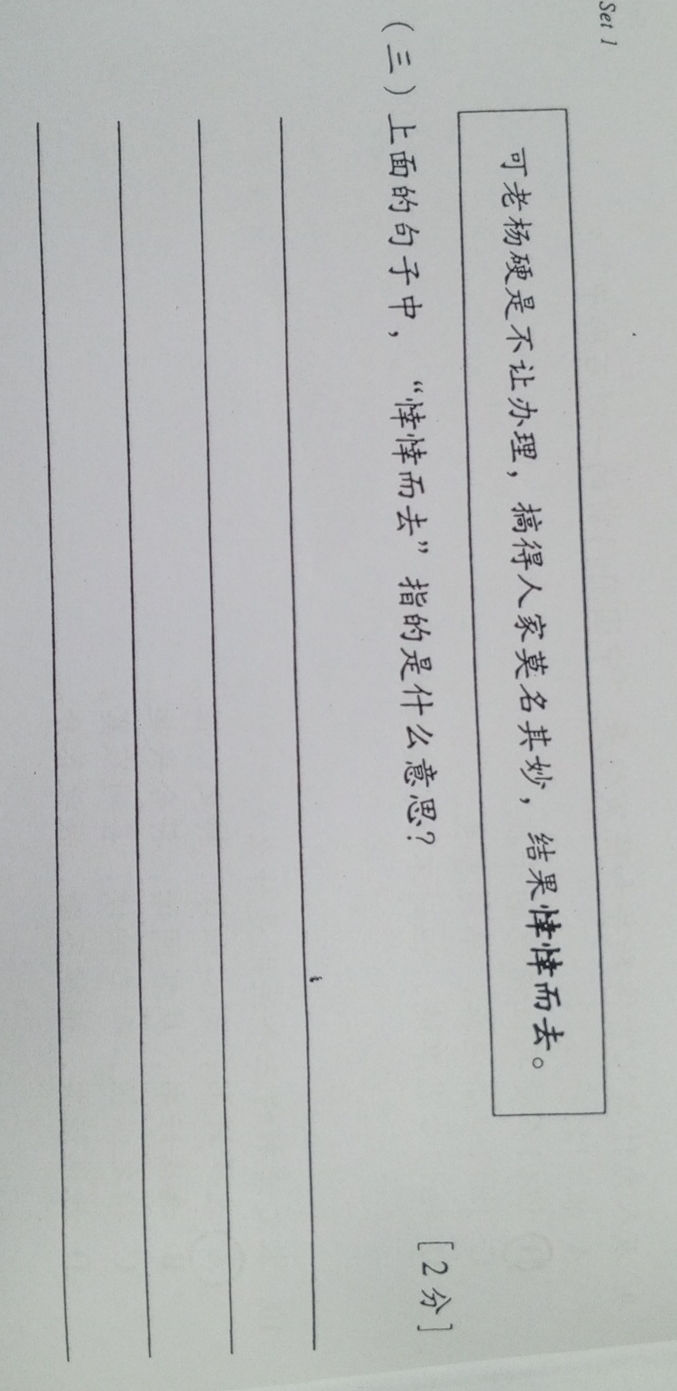 Set 1
可老杨硬是不让办理，搞得人家莫名其妙，结果悻悻而去。
（三）上面的句子中，“悻悻而去”指的是什么意思？ [2分]